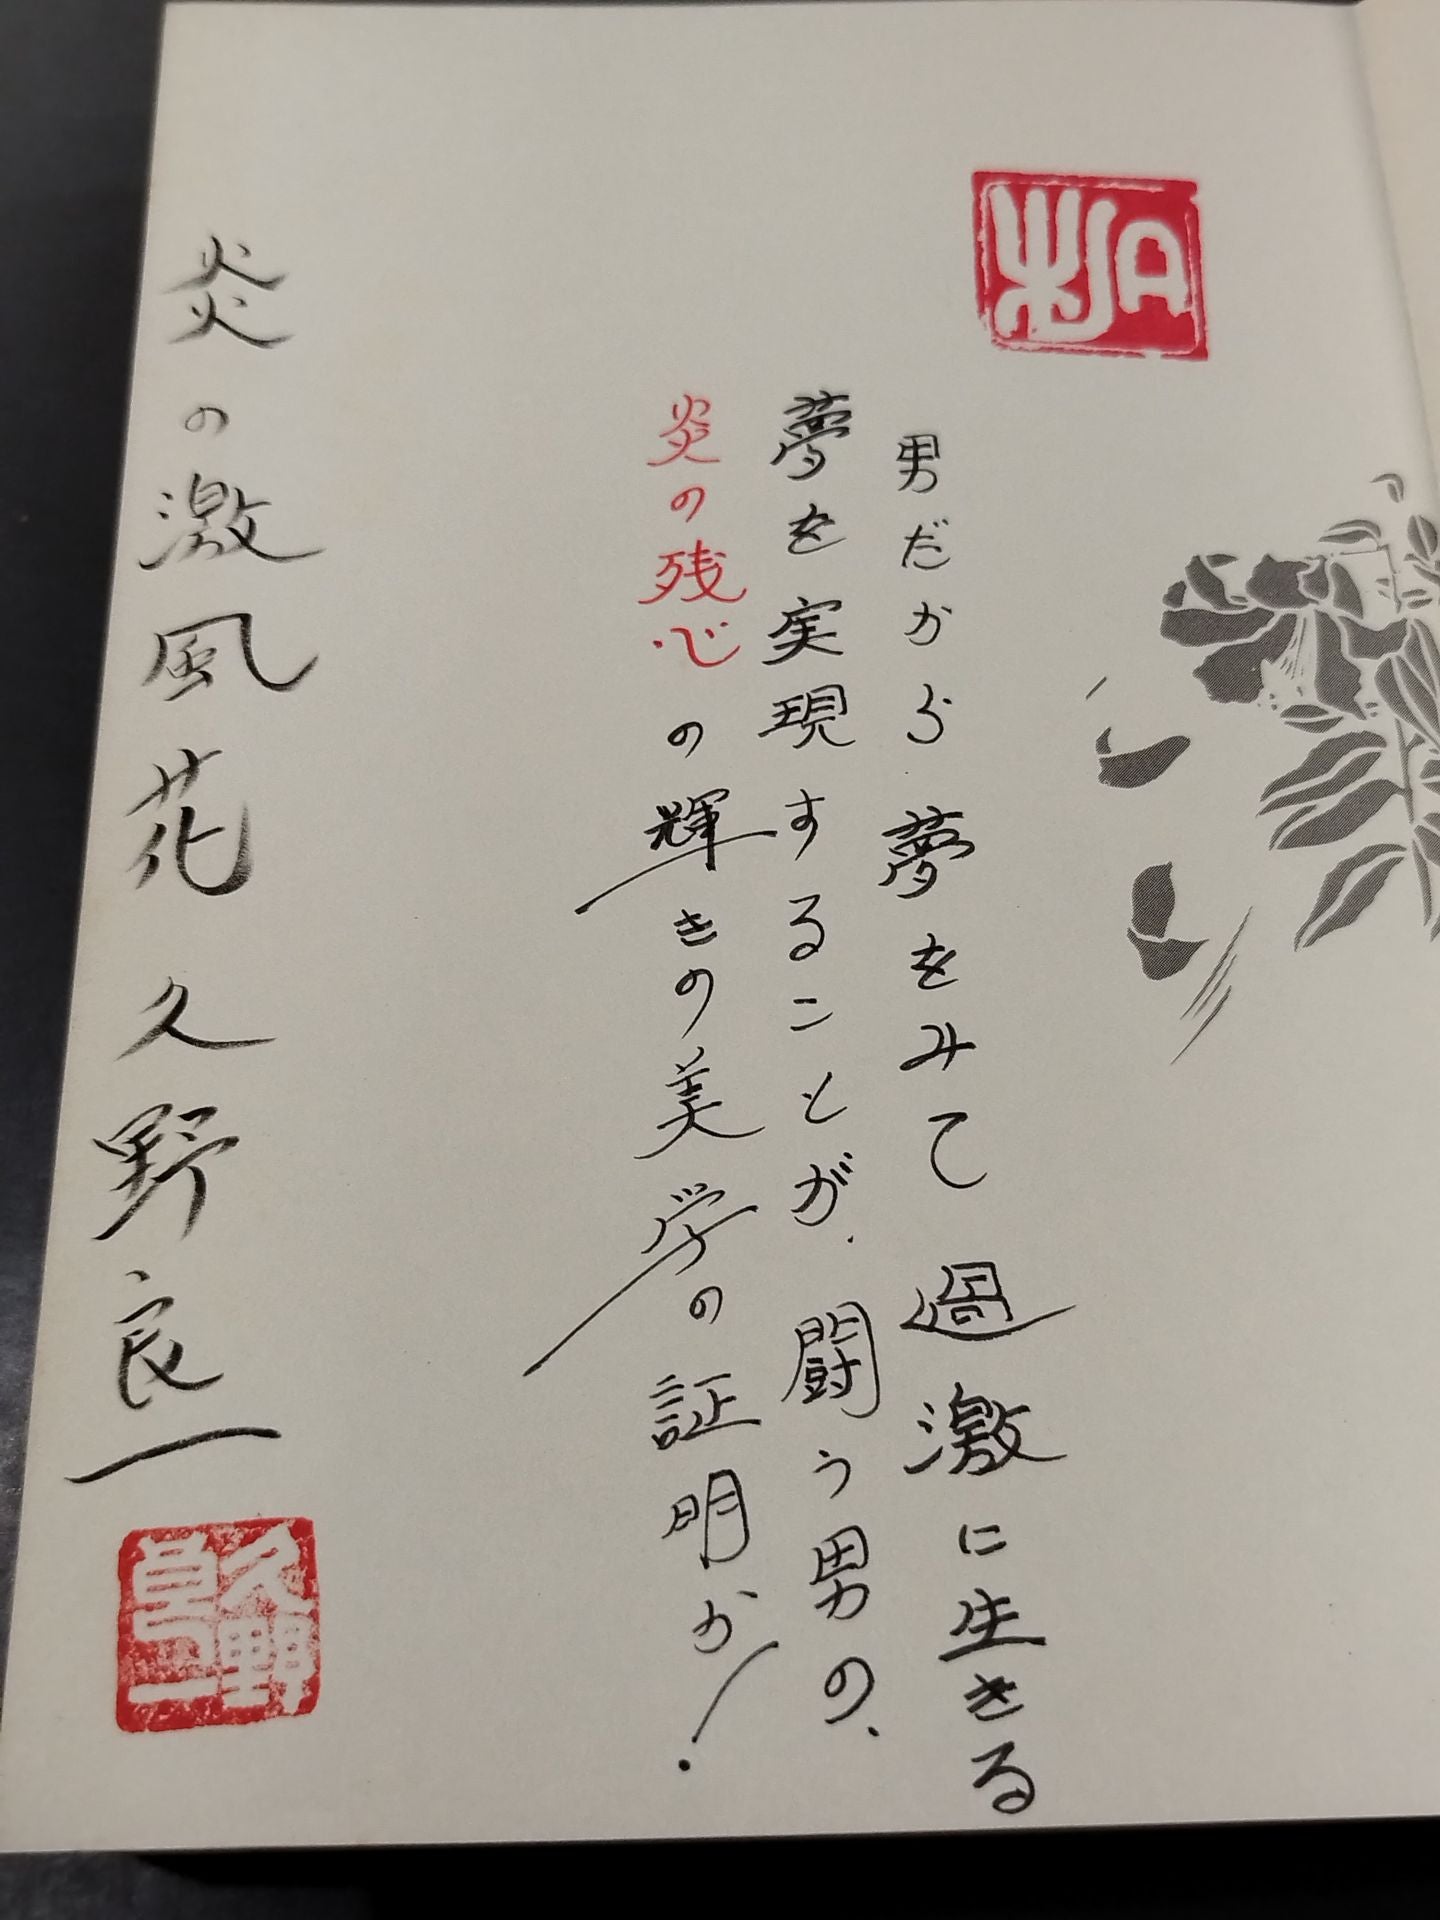 男だから夢をみて過激に生きる
夢を実現することが、闘う男の、
炎の残心の輝きの美学の証明か!
炎の激風花 久野良一
久野良一